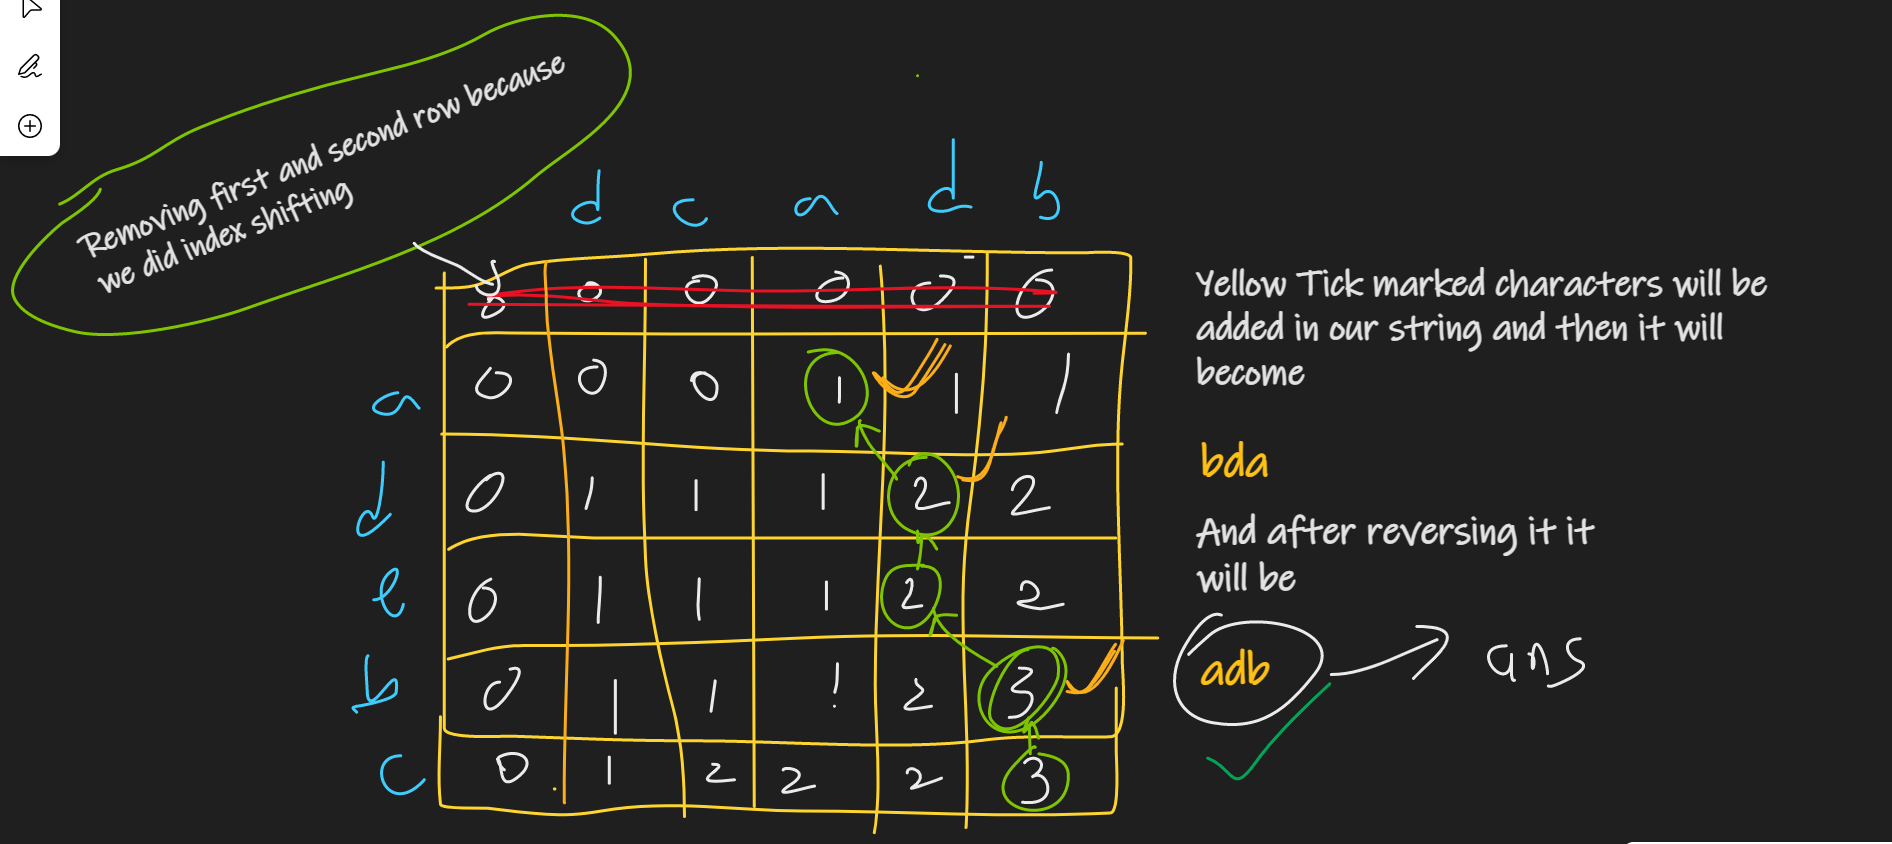 Removing first and second row because
we did index shifting
d c a d b
0 0 0 0 0
a 0 0 0 1 1 1
d 0 1 1 1 2 2
e 0 1 1 1 2 2
b 0 1 1 ! 2 3
c 0 1 2 2 2 3
Yellow Tick marked characters will be
added in our string and then it will
become
bda
And after reversing it it
will be
adb
ans